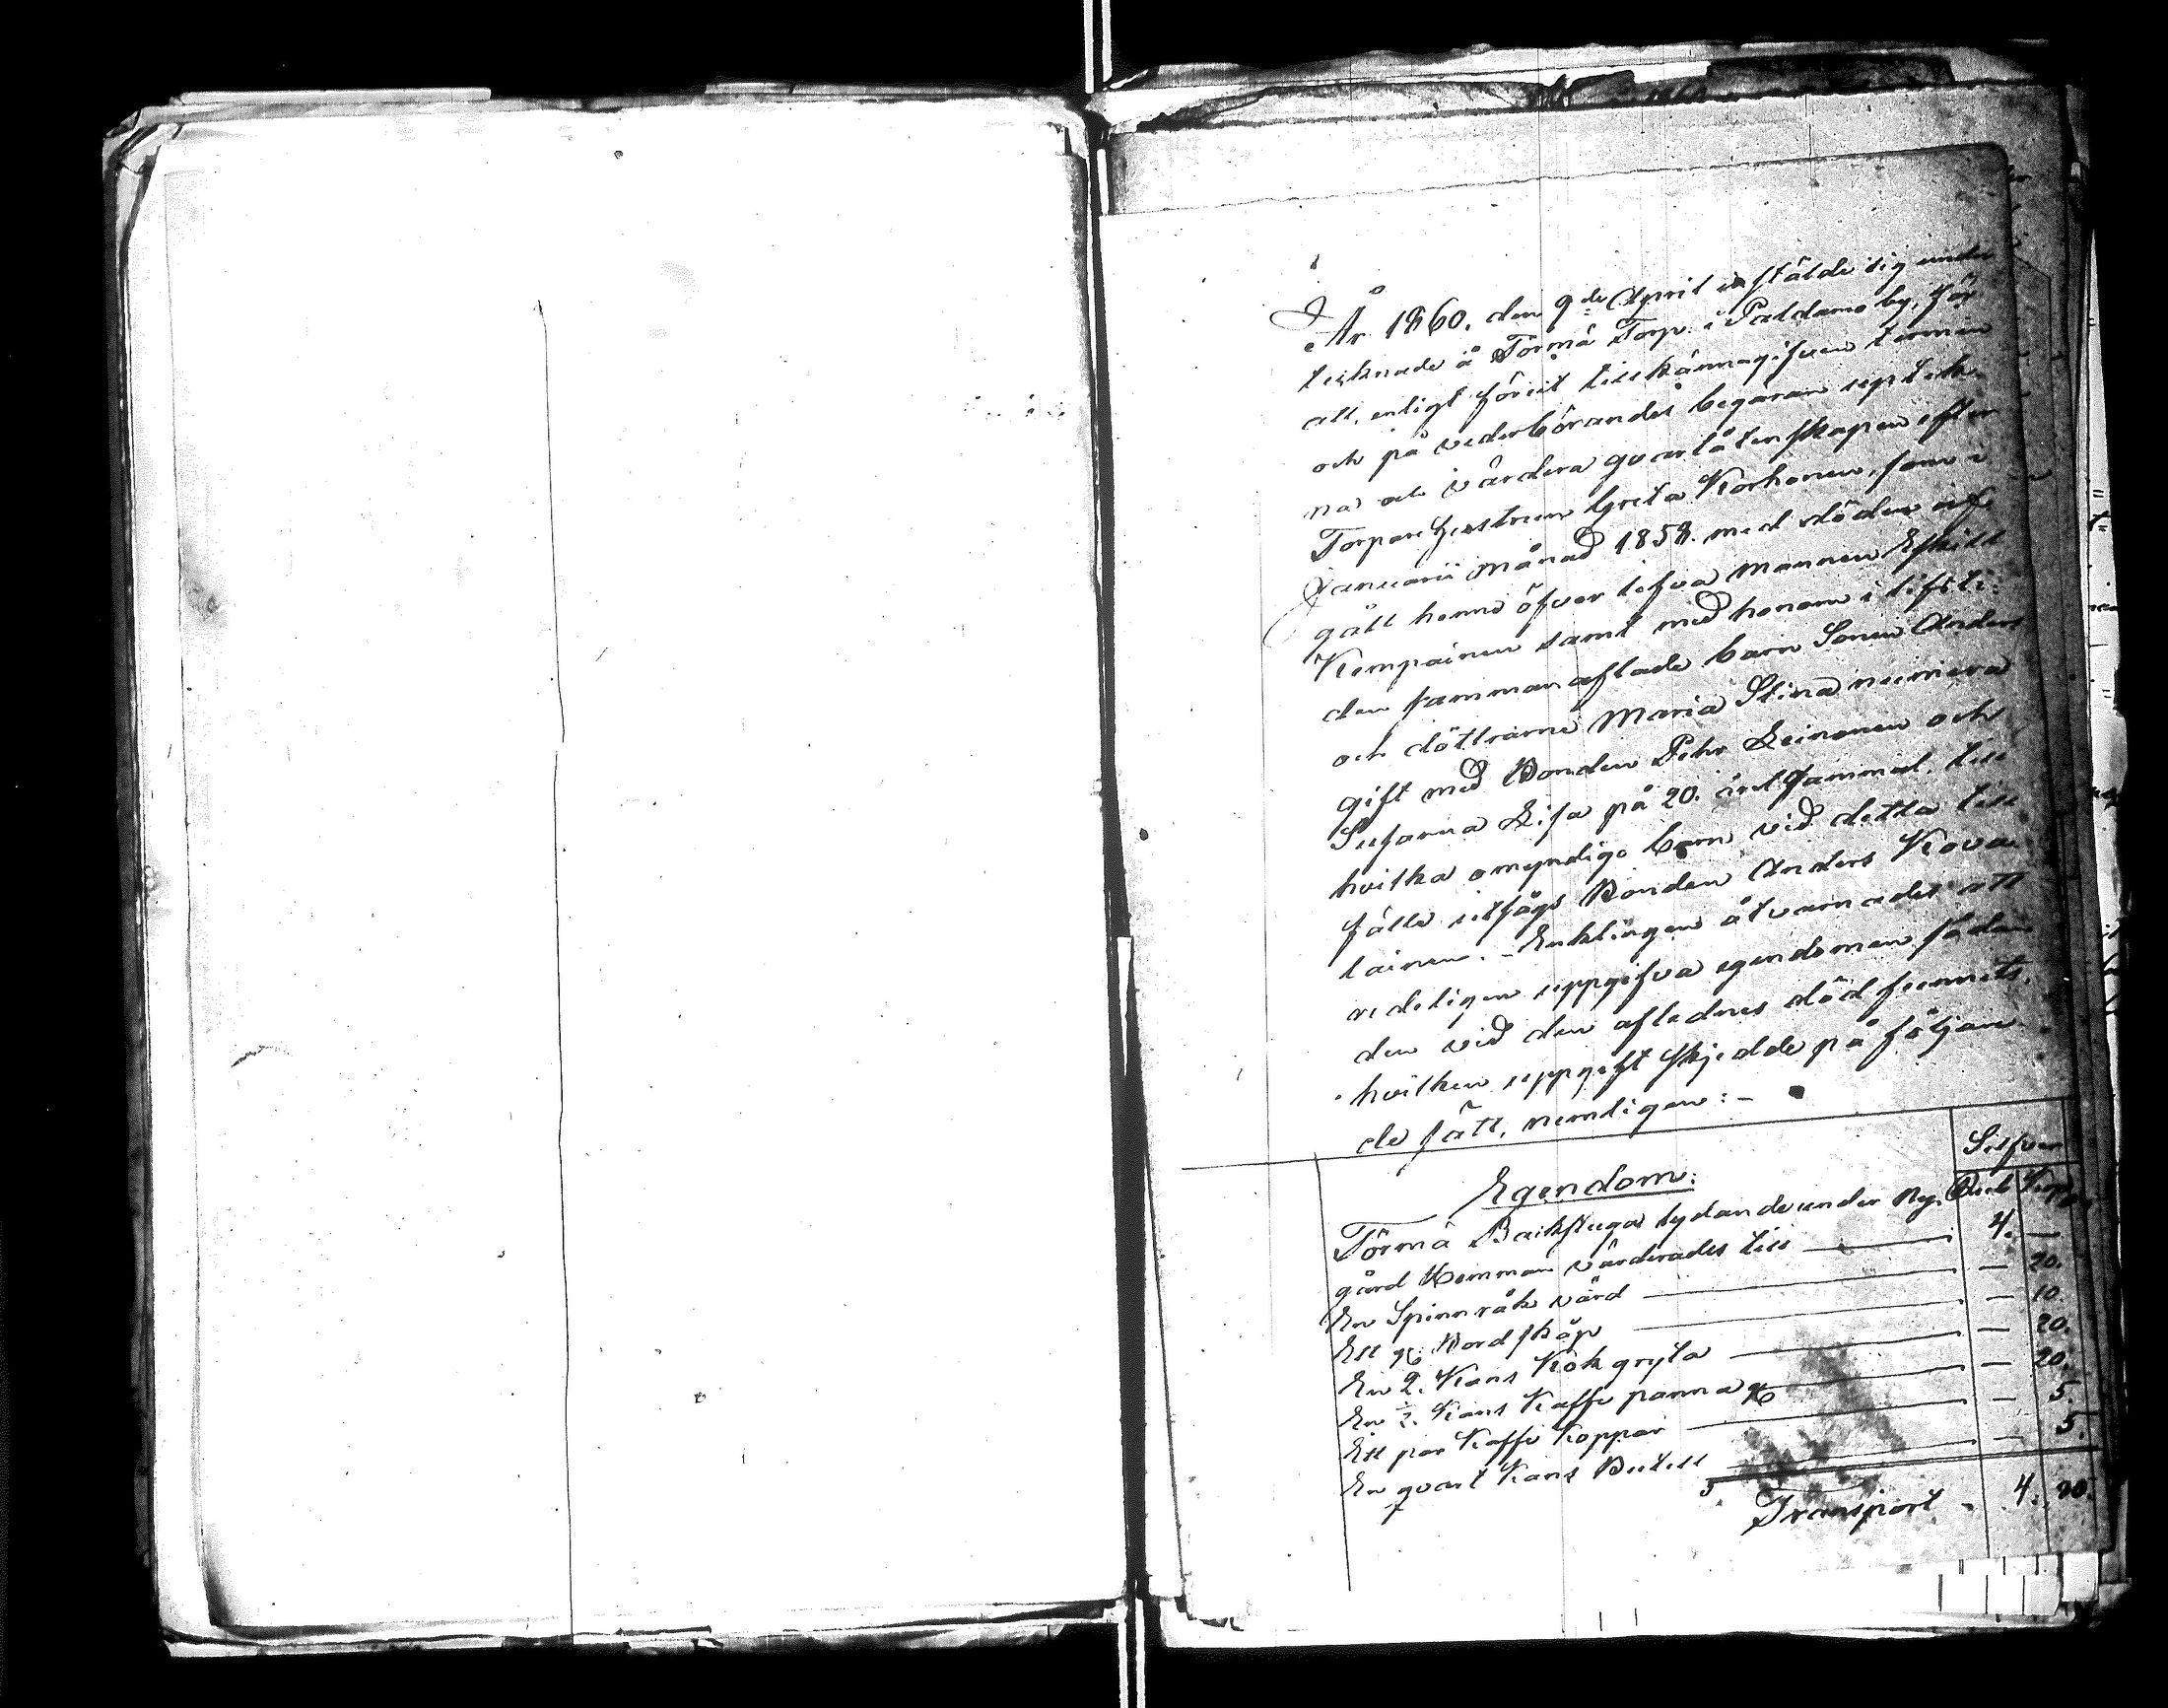 År 1860. den 9de April instälde sig under
tecknade å Törmä Torp i Paldamo by, för
att, enligt förut tillkännagifven termin
och på vederbörandes begäran uptek-
na och värdera qvarlåtenskapen efter
Torpare hustrun Greta Korhonen, som i
Januarii månad 1858. med döden af-
gått henns öfver lefva mannen Eskill
Kempainen samt med honom i lifsti-
den samman aflade barn Sonen Anders
och döttrarne Maria Stina numera
gift med Bonden Pehr Leinonen och
Susanna Lisa på 20. året gammal. till
hvilka omyndiga barn vid detta till
fälle utsågs Bonden Anders Kova-
lainen. - Enklingen åtvarnades att
redeligen uppgifva egendomen sådan
den vid den aflednes död funnits.
hvilken uppgift skjedde på följan-
de sätt, nemligen: -
Silfver
Egendom: Rub Kop
Törmä Backstuga lydande under Ny-
gård Hemman värderades till 4. —
En Spinnråk värd — 20.
Ett gl Bordskåp — 10.
En 2. Kans Kokgryta — 20.
En ½. Kans Kaffe panna gl — 20.
Ett par Kaffe Koppar — 5.
En qvart Kans Butell — 5.
Transport - 4. 80.